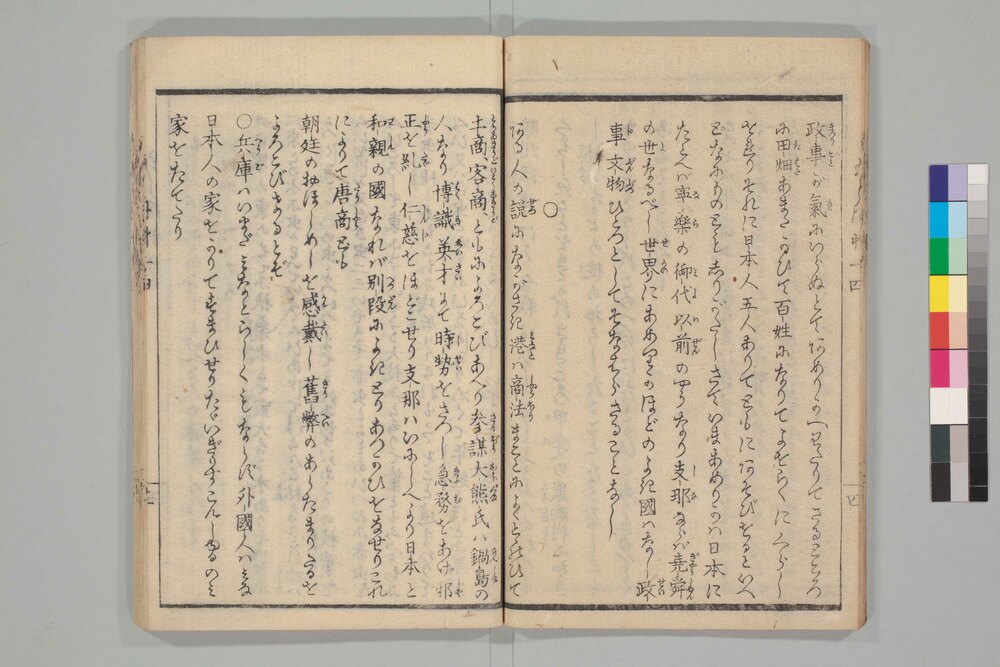 政事が氣にいらぬとてあめりかへわたりてさるところ
に田畑あまたかひて百姓になりてよをらくにくらし
をれりそれに日本人五人ありてともにあそびをるといへ
どなにものともしりがたしさていまあめりかは日本に
たとへば寧樂の御代以前のころなり支那ならば堯舜
の世なるべし世界にあめりかほどのよき國はなし政
事文物ひとつとしてそなはらざることなし
○
ある人の説にながさき港は商法まことによくとゝのひて
土商、客商、ともによろこびあへり参謀大熊氏ハ鍋島の
人なり博識英才にて時勢をさつし急務をあげ邪
正を糺し仁慈をほどこせり支那ハいにしへより日本と
和親の國なれバ別段によきとりあつかひをなせりこれ
によりて唐商とも
朝廷のおほしめしを感戴し舊弊のあらたまりたるを
よろこびきるとぞ
○兵庫ハいまだみなとらしくもならず外國人ハみな
日本人の家をかりてすまひせりたゞいぎりすこんしゆるのミ
家をたてたり